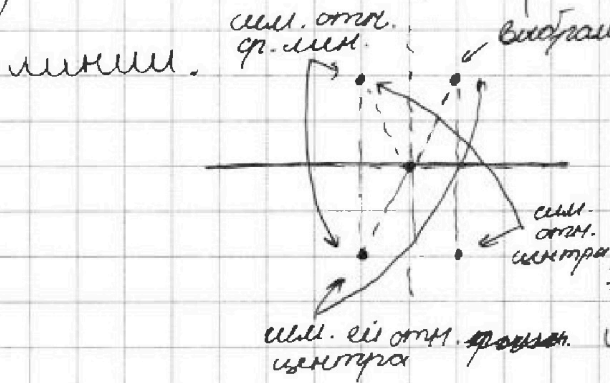 линии.
сим. отн.
ср. лин.
выбран
сим.
отн.
центра
сим. ей отн.
центра